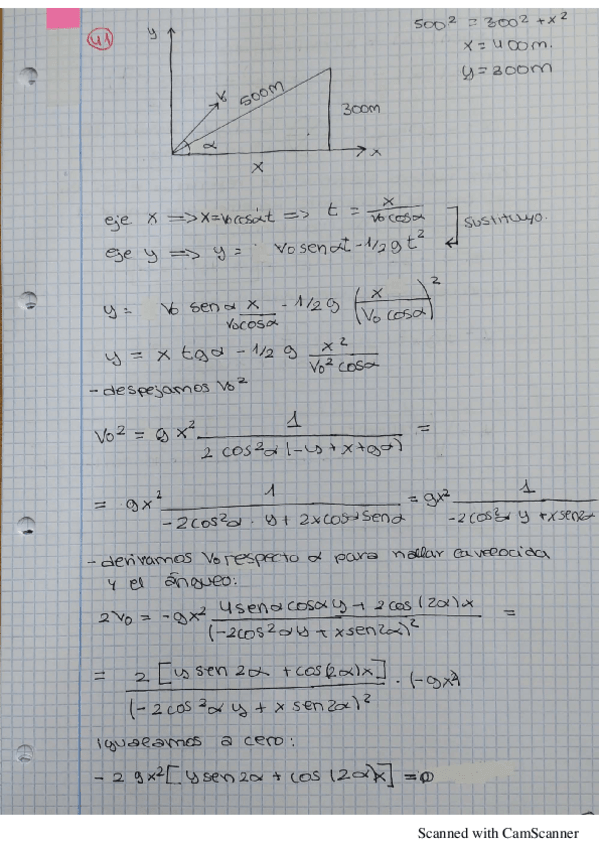 41
500² = 300² + x²
x = 400m.
y = 300m
y
v
500m
300m
α
x
x
eje x => x = v₀cosαt => t = x/(v₀cosα)
eje y => y = v₀senαt - 1/2 g t²
sustituyo.
y = v₀ senα x/(v₀cosα) - 1/2 g (x/(v₀ cosα))²
y = x tgα - 1/2 g x²/(v₀² cosα)
- despejamos v₀²
v₀² = g x² 1/(2 cos²α (-y + x tgα)) =
= gx² 1/(-2cos²α · y + 2x cosα senα) = gx² 1/(-2cos²α y + x sen2α)
- derivamos v₀ respecto α para hallar la velocida
y el ángulo:
2v₀ = -gx² (4senα cosα y + 2cos(2α)x)/(-2cos²αy + xsen2α)² =
= 2[y sen 2α + cos(2α)x]/(-2cos²α y + x sen2α)² · (-gx²)
igualamos a cero:
- 2 gx² [y sen2α + cos(2α)x] = 0
Scanned with CamScanner